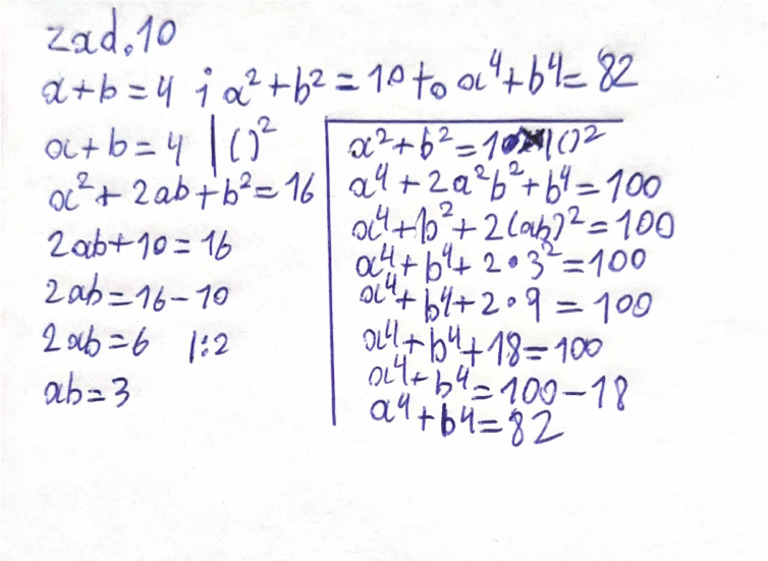 zad.10
a+b=4 i a²+b²=10 to a⁴+b⁴=82
a+b=4 |()²
a²+2ab+b²=16
2ab+10=16
2ab=16-10
2ab=6 |:2
ab=3
a²+b²=10 |()²
a⁴+2a²b²+b⁴=100
a⁴+b²+2(ab)²=100
a⁴+b⁴+2·3²=100
a⁴+b⁴+2·9=100
a⁴+b⁴+18=100
a⁴+b⁴=100-18
a⁴+b⁴=82